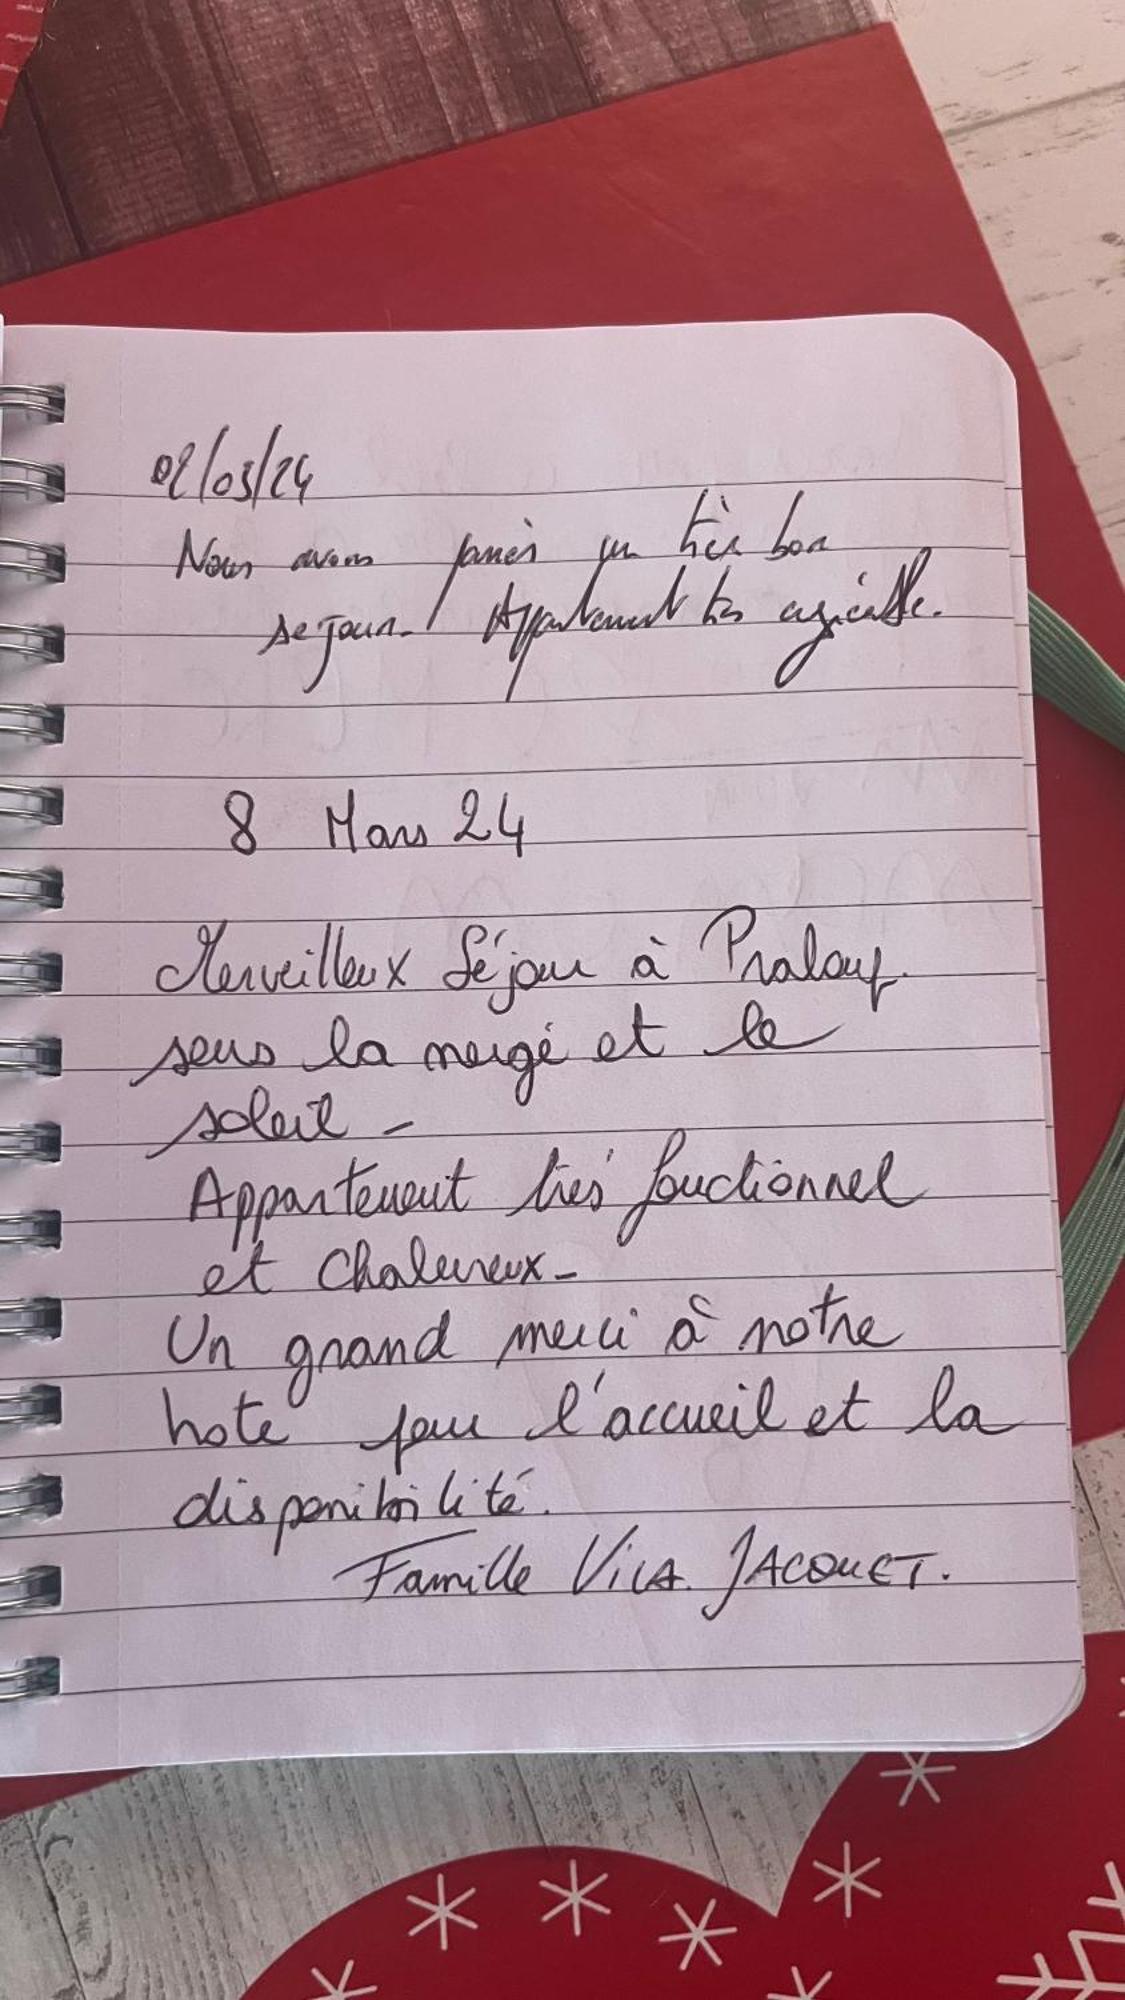 02/03/24
Nous avons passés un très bon
séjour. Appartement très agréable.
8 Mars 24
Merveilleux Séjour à Praloup
sous la neige et le
soleil -
Appartement très fonctionnel
et chaleureux -
Un grand merci à notre
hote pour l'accueil et la
disponibilité.
Famille VILA. JACQUET.